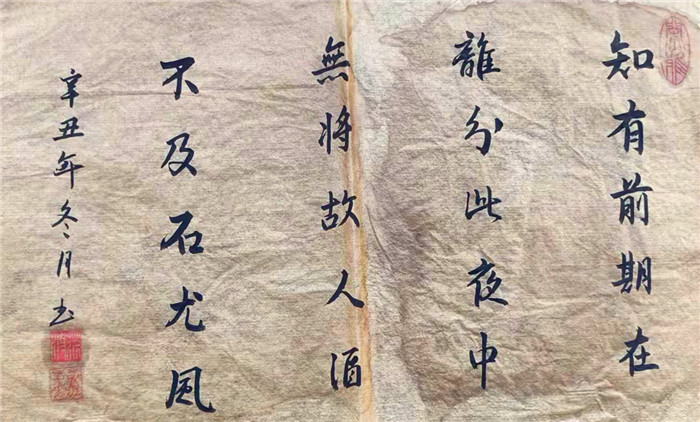 知有前期在
離分此夜中
無將故人酒
不及石尤風
辛丑年冬月书